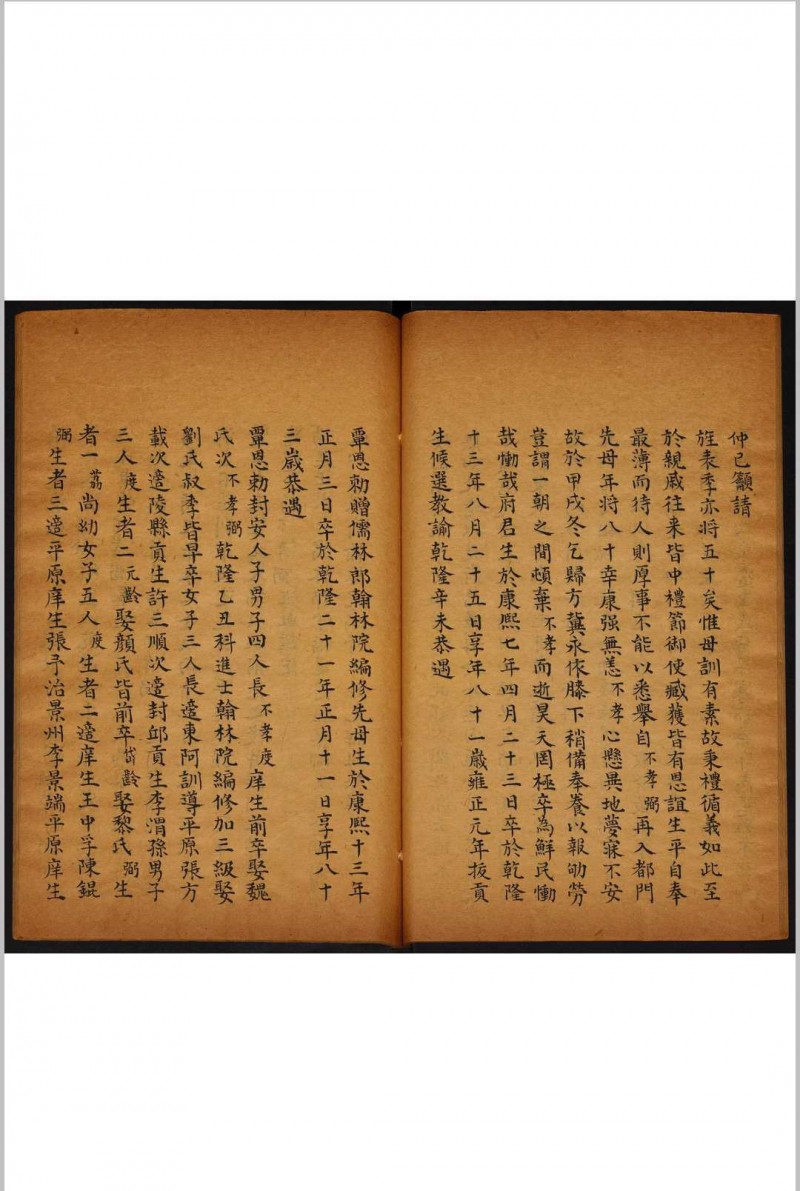 仲已籲請
旌表季亦將五十矣惟母訓有素故秉禮循義如此至
於親戚往来皆中禮節御使臧獲皆有恩誼生平自奉
最薄而待人則厚事不能以悉舉自不孝弼再入都門
先母年將八十幸康强無恙不孝心懸異地夢寐不安
故於甲戌冬乞歸方冀永依膝下稍備奉養以報劬勞
豈謂一朝之間頓棄不孝而逝昊天罔極卒為鮮民慟
哉慟哉府君生於康熙七年四月二十三日卒於乾隆
十三年八月二十五日享年八十一歲雍正元年拔貢
生候選教諭乾隆辛未恭遇
覃恩勅贈儒林郎翰林院編修先母生於康熙十三年
正月三日卒於乾隆二十一年正月十一日享年八十
三歲恭遇
覃恩勅封安人子男子四人長不孝度庠生前卒娶魏
氏次不孝弼乾隆乙丑科進士翰林院編修加三級娶
劉氏叔季皆早卒女子三人長適東阿訓導平原張方
載次適陵縣貢生許三順次適封邱貢生李渭孫男子
三人度生者二元齡娶顏氏皆前卒岱齡娶黎氏弼生
者一荔尚幼女子五人度生者二適庠生王中孚陳錕
弼生者三適平原庠生張予治景州李景端平原庠生